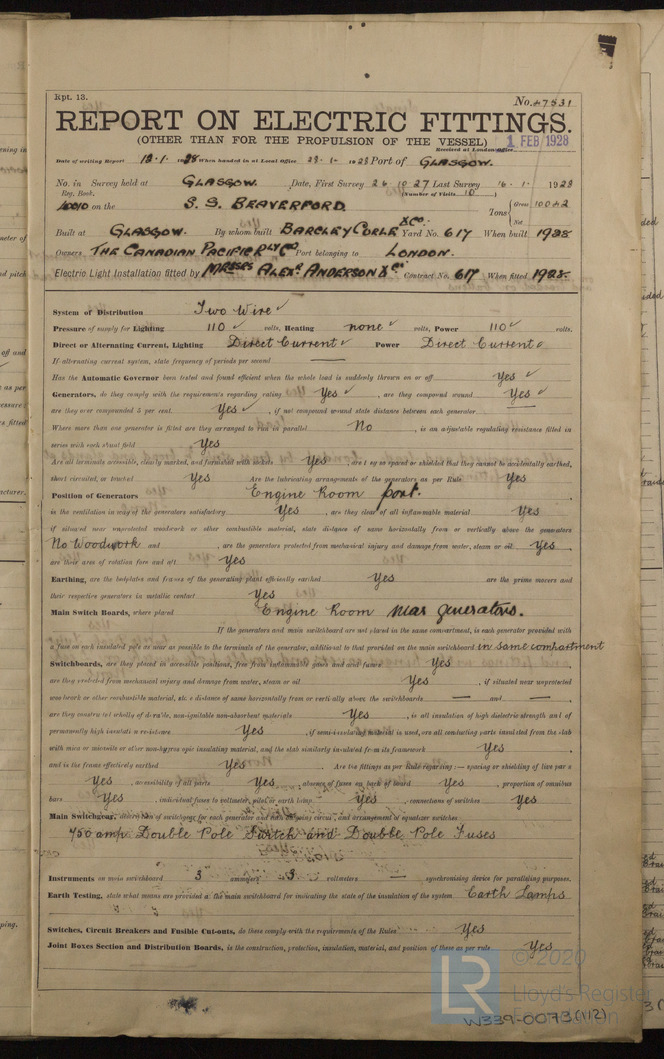 Rpt. 13.
No. 47531
REPORT ON ELECTRIC FITTINGS.
(OTHER THAN FOR THE PROPULSION OF THE VESSEL)
1 FEB 1928
Received at London Office
Date of writing Report 12.1.1928 When handed in at Local Office 1928 Port of GLASGOW.
No. in Survey held at GLASGOW. Date, First Survey 26 10 27 Last Survey 1928
Reg. Book. (Number of Visits 10)
on the S.S. BEAVERFORD Tons { Gross 10042 Net
Built at GLASGOW. By whom built BARCLEY CORLE & CO. Yard No. 617 When built 1928
Owners THE CANADIAN PACIFIC RLY CO Port belonging to LONDON.
Electric Light Installation fitted by MESSRS ALEXR ANDERSON & CO. Contract No. 617 When fitted 1928.
System of Distribution Two Wire ✓
Pressure of supply for Lighting 110 ✓ volts, Heating none ✓ volts, Power 110 ✓ volts.
Direct or Alternating Current, Lighting Direct Current ✓ Power Direct Current ✓
If alternating current system, state frequency of periods per second —
Has the Automatic Governor been tested and found efficient when the whole load is suddenly thrown on or off Yes ✓
Generators, do they comply with the requirements regarding rating Yes ✓, are they compound wound Yes ✓
are they over compounded 5 per cent. Yes ✓, if not compound wound state distance between each generator —
Where more than one generator is fitted are they arranged to run in parallel No, is an adjustable regulating resistance fitted in
series with each shunt field Yes
Are all terminals accessible, clearly marked, and furnished with sockets Yes, are they so spaced or shielded that they cannot be accidentally earthed,
short circuited, or touched Yes Are the lubricating arrangements of the generators as per Rule Yes
Position of Generators Engine Room port.
is the ventilation in way of the generators satisfactory Yes, are they clear of all inflammable material Yes
if situated near unprotected woodwork or other combustible material, state distance of same horizontally from or vertically above the generators
No Woodwork and , are the generators protected from mechanical injury and damage from water, steam or oil Yes,
are their axes of rotation fore and aft Yes
Earthing, are the bedplates and frames of the generating plant efficiently earthed Yes are the prime movers and
their respective generators in metallic contact Yes
Main Switch Boards, where placed Engine Room near generators.
If the generators and main switchboard are not placed in the same compartment, is each generator provided with
a fuse on each insulated pole as near as possible to the terminals of the generator, additional to that provided on the main switchboard in same compartment
Switchboards, are they placed in accessible positions, free from inflammable gases and acid fumes Yes,
are they protected from mechanical injury and damage from water, steam or oil Yes, if situated near unprotected
woodwork or other combustible material, state distance of same horizontally from or vertically above the switchboards — and —,
are they constructed wholly of durable, non-ignitable non-absorbent materials Yes, is all insulation of high dielectric strength and of
permanently high insulation resistance Yes, if semi-insulating material is used, are all conducting parts insulated from the slab
with mica or micanite or other non-hygroscopic insulating material, and the slab similarly insulated from its framework Yes,
and is the frame effectively earthed Yes. Are the fittings as per Rule regarding:— spacing or shielding of live parts
Yes, accessibility of all parts Yes, absence of fuses on back of board Yes, proportion of omnibus
bars Yes, individual fuses to voltmeter, pilot or earth lamp Yes, connections of switches Yes
Main Switchgear, description of switchgear for each generator and each outgoing circuit, and arrangement of equalizer switches
450 amp Double Pole Switch and Double Pole Fuses
Instruments on main switchboard 3 ammeters 3 voltmeters — synchronising device for paralleling purposes.
Earth Testing, state what means are provided at the main switchboard for indicating the state of the insulation of the system Earth Lamps
Switches, Circuit Breakers and Fusible Cut-outs, do these comply with the requirements of the Rules Yes
Joint Boxes Section and Distribution Boards, is the construction, protection, insulation, material, and position of these as per rule Yes
LR
© 2020
Lloyd's Register
Foundation
W339-0073 (1/2)